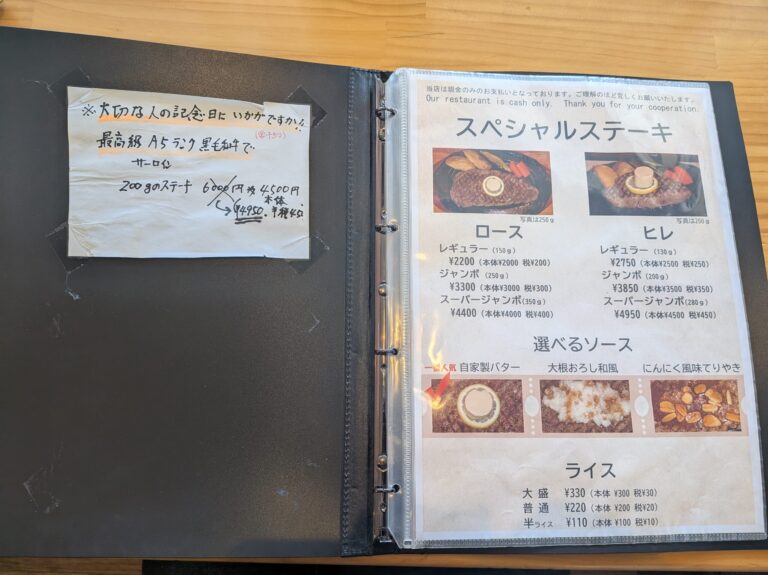 ※大切な人の記念日にいかがですか!
最高級 A5ランク 黒毛和牛で
サーロイン
200gのステーキ 6000円が4,500円
本体
¥4950 税450
当店は現金のみのお支払いとなっております。ご理解のほど宜しくお願いいたします。
Our restaurant is cash only. Thank you for your cooperation.
スペシャルステーキ
写真は250g
写真は200g
ロース
レギュラー (150g)
¥2200 (本体¥2000 税¥200)
ジャンボ (250g)
¥3300 (本体¥3000 税¥300)
スーパージャンボ(350g)
¥4400 (本体¥4000 税¥400)
ヒレ
レギュラー (130g)
¥2750 (本体¥2500 税¥250)
ジャンボ (200g)
¥3850 (本体¥3500 税¥350)
スーパージャンボ(280g)
¥4950 (本体¥4500 税¥450)
選べるソース
一番人気 自家製バター
大根おろし和風
にんにく風味てりやき
ライス
大 盛 ¥330 (本体 ¥300 税¥30)
普 通 ¥220 (本体 ¥200 税¥20)
半ライス ¥110 (本体 ¥100 税¥10)